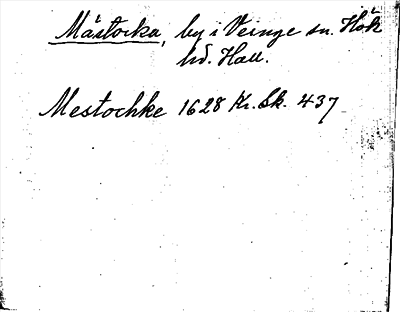 Mästocka, by i Veinge sn. Hök
hd. Hall.
Mestochke 1628 Kr. Sk. 437